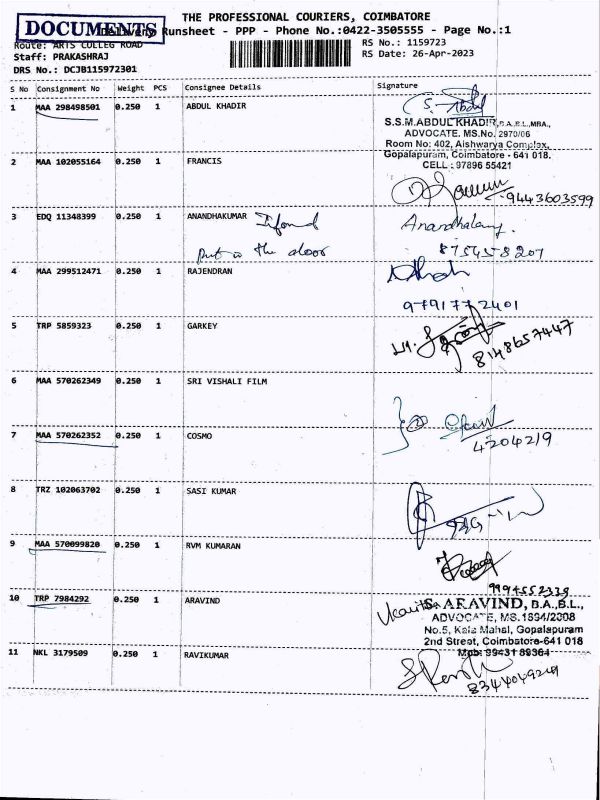 THE PROFESSIONAL COURIERS, COIMBATORE
DOCUMENTS
Runsheet - PPP - Phone No.:0422-3505555 - Page No.:1
Route: ARTS COLLEG ROAD
RS No.: 1159723
Staff: PRAKASHRAJ
RS Date: 26-Apr-2023
DRS No.: DCJB115972301
S No Consignment No Weight PCS Consignee Details Signature
1 MAA 298498501 0.250 1 ABDUL KHADIR
S. Abdul
S.S.M.ABDUL KHADIR, B.A.,B.L.,MBA.,
ADVOCATE. MS.No. 2970/06
Room No: 402, Aishwarya Complex,
Gopalapuram, Coimbatore - 641 018.
CELL : 97896 55421
2 MAA 102055164 0.250 1 FRANCIS
9443603599
3 EDQ 11348399 0.250 1 ANANDHAKUMAR
put in the door
8754558207
4 MAA 299512471 0.250 1 RAJENDRAN
9791772401
5 TRP 5859323 0.250 1 GARKEY
8148657447
6 MAA 570262349 0.250 1 SRI VISHALI FILM
7 MAA 570262352 0.250 1 COSMO
4204219
8 TRZ 102063702 0.250 1 SASI KUMAR
9 MAA 570099820 0.250 1 RVM KUMARAN
9994552339
10 TRP 7984292 0.250 1 ARAVIND
S. ARAVIND, B.A.,B.L.,
ADVOCATE, MS.1894/2008
No.5, Kala Mahal, Gopalapuram
2nd Street, Coimbatore-641 018
Mob: 99431 89364
11 NKL 3179509 0.250 1 RAVIKUMAR
8344049249